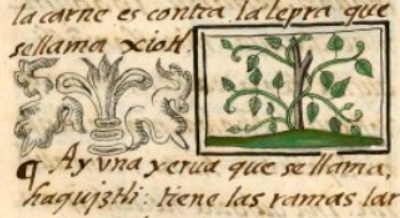 la carne es contra la lepra que
se llama xiotl.
¶ Ay vna yerua que se llama,
haquiztli: tiene las ramas lar